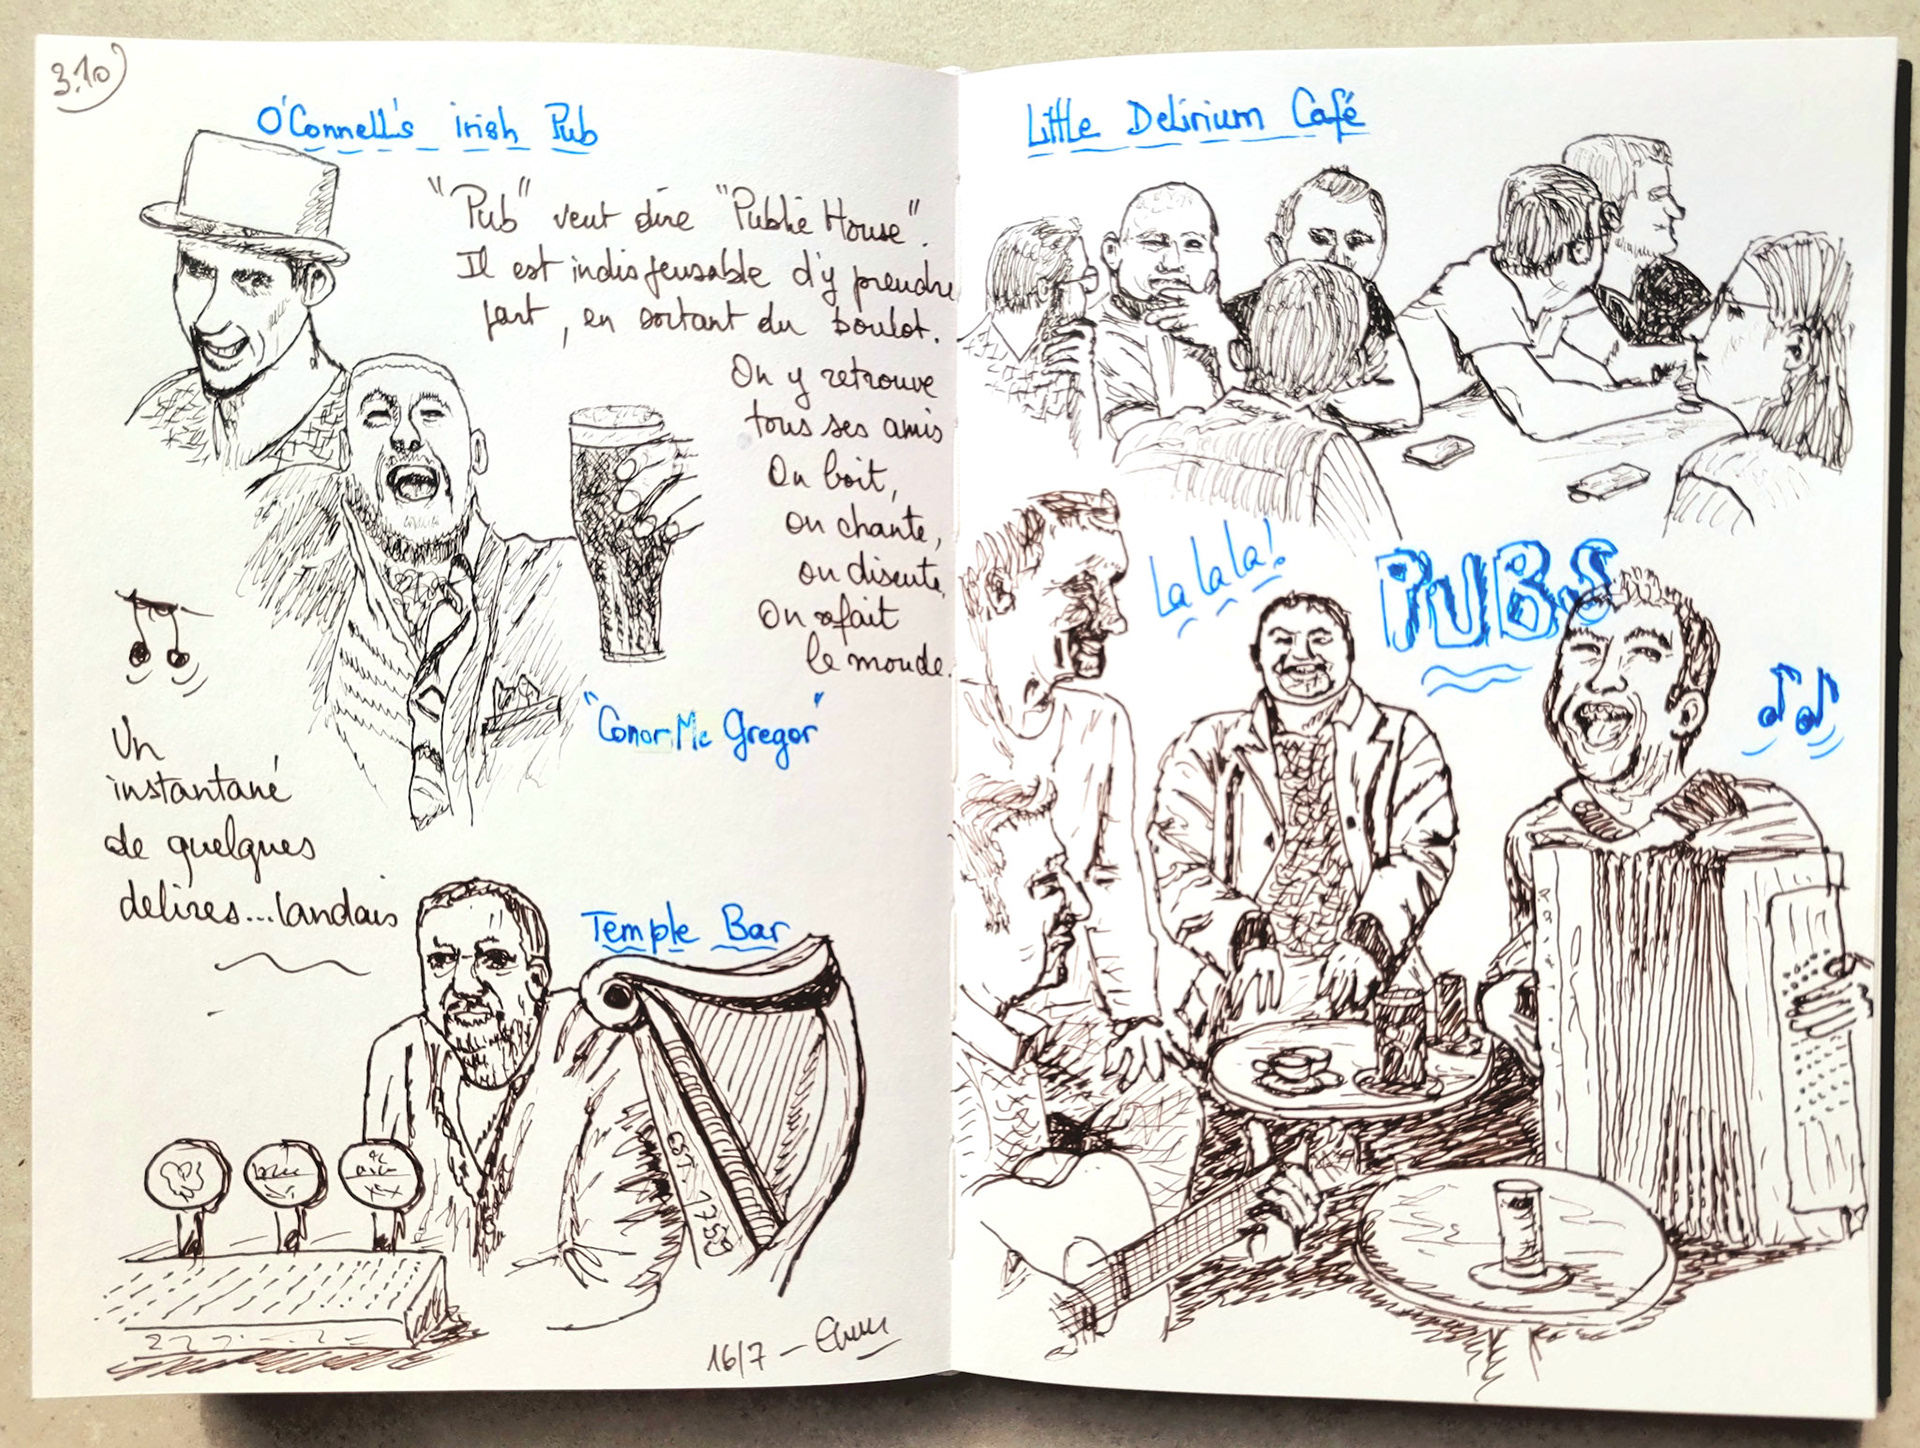 3.10
O'Connell's irish Pub
"Pub" veut dire "Public House".
Il est indispensable d'y prendre
part, en sortant du boulot.
On y retrouve
tous ses amis
On boit,
on chante,
on discute,
On refait
le monde.
"Conor Mc Gregor"
Un
instantané
de quelques
delires...landais
Temple Bar
EST 1759
16/7 -
Little Delirium Café
La la la!
PUBS